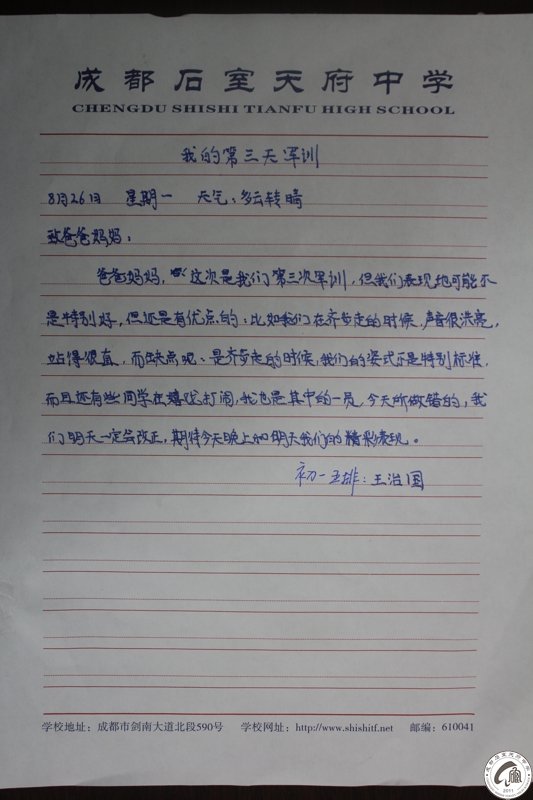 成都石室天府中学
CHENGDU SHISHI TIANFU HIGH SCHOOL
我的第三天军训
8月26日 星期一 天气:多云转晴
致爸爸妈妈:
爸爸妈妈,这次是我们第三次军训,但我们表现地可能不
是特别好,但还是有优点的:比如我们在齐步走的时候,声音很洪亮,
站得很直,而缺点呢、是齐步走的时候,我们的姿式不是特别标准,
而且还有些同学在嬉戏打闹,我也是其中的一员,今天所做错的,我
们明天一定会改正,期待今天晚上和明天我们的精彩表现。
初一五排:王治国
学校地址:成都市剑南大道北段590号 学校网址:http://www.shishitf.net 邮编:610041
2011